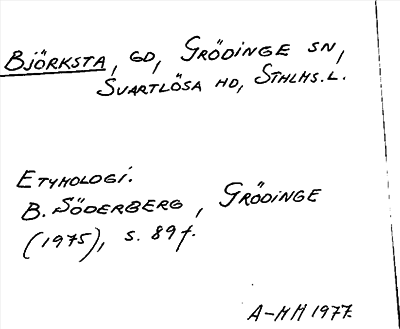 Björksta, GD, Grödinge sn,
Svartlösa hd, Sthlms. L.
Etymologi.
B. Söderberg, Grödinge
(1975), s. 89 f.
A-MH 1977